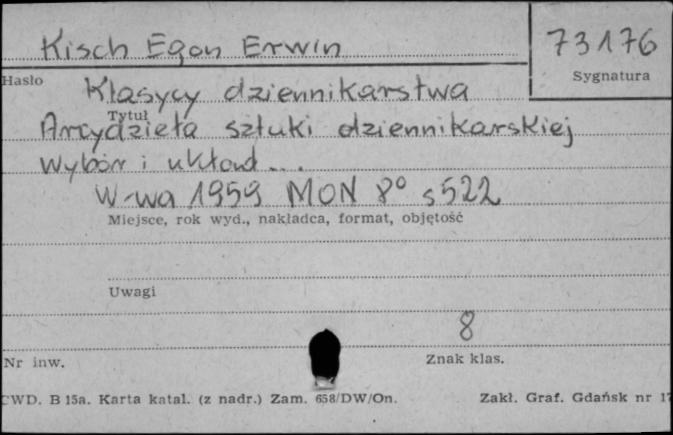 Kisch Egon Erwin
73176
Hasło
Sygnatura
Klasycy dziennikarstwa
Tytuł
Arcydzieła sztuki dziennikarskiej
Wybór i układ ...
W-wa 1959 MON 8° s 522
Miejsce, rok wyd., nakładca, format, objętość
Uwagi
8
Nr inw.
Znak klas.
CWD. B 15a. Karta katal. (z nadr.) Zam. 658/DW/On.
Zakł. Graf. Gdańsk nr